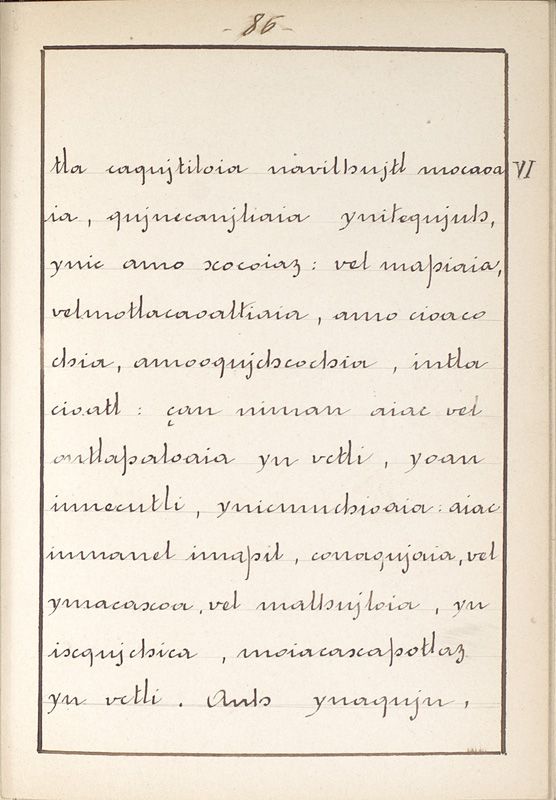 - 86 -
tla caqujtiloia navilhujtl mocaoa VI
ia, qujnecanjliaia ynitequjuh,
ynic amo xocoiaz: vel mapiaia,
velmotlacaoaltiaia, amo cioaco
chia, amooqujchcochia, intla
cioatl: çan niman aiac vel
ontlapaloaia yn vctli, yoan
innecutli, ynicmuchioaia: aiac
inmanel imapil, conaqujaia, vel
ymacaxoa, vel malhujloia, yn
ixqujchica, moiacaxapotlaz
yn vctli. Auh ynaqujn,